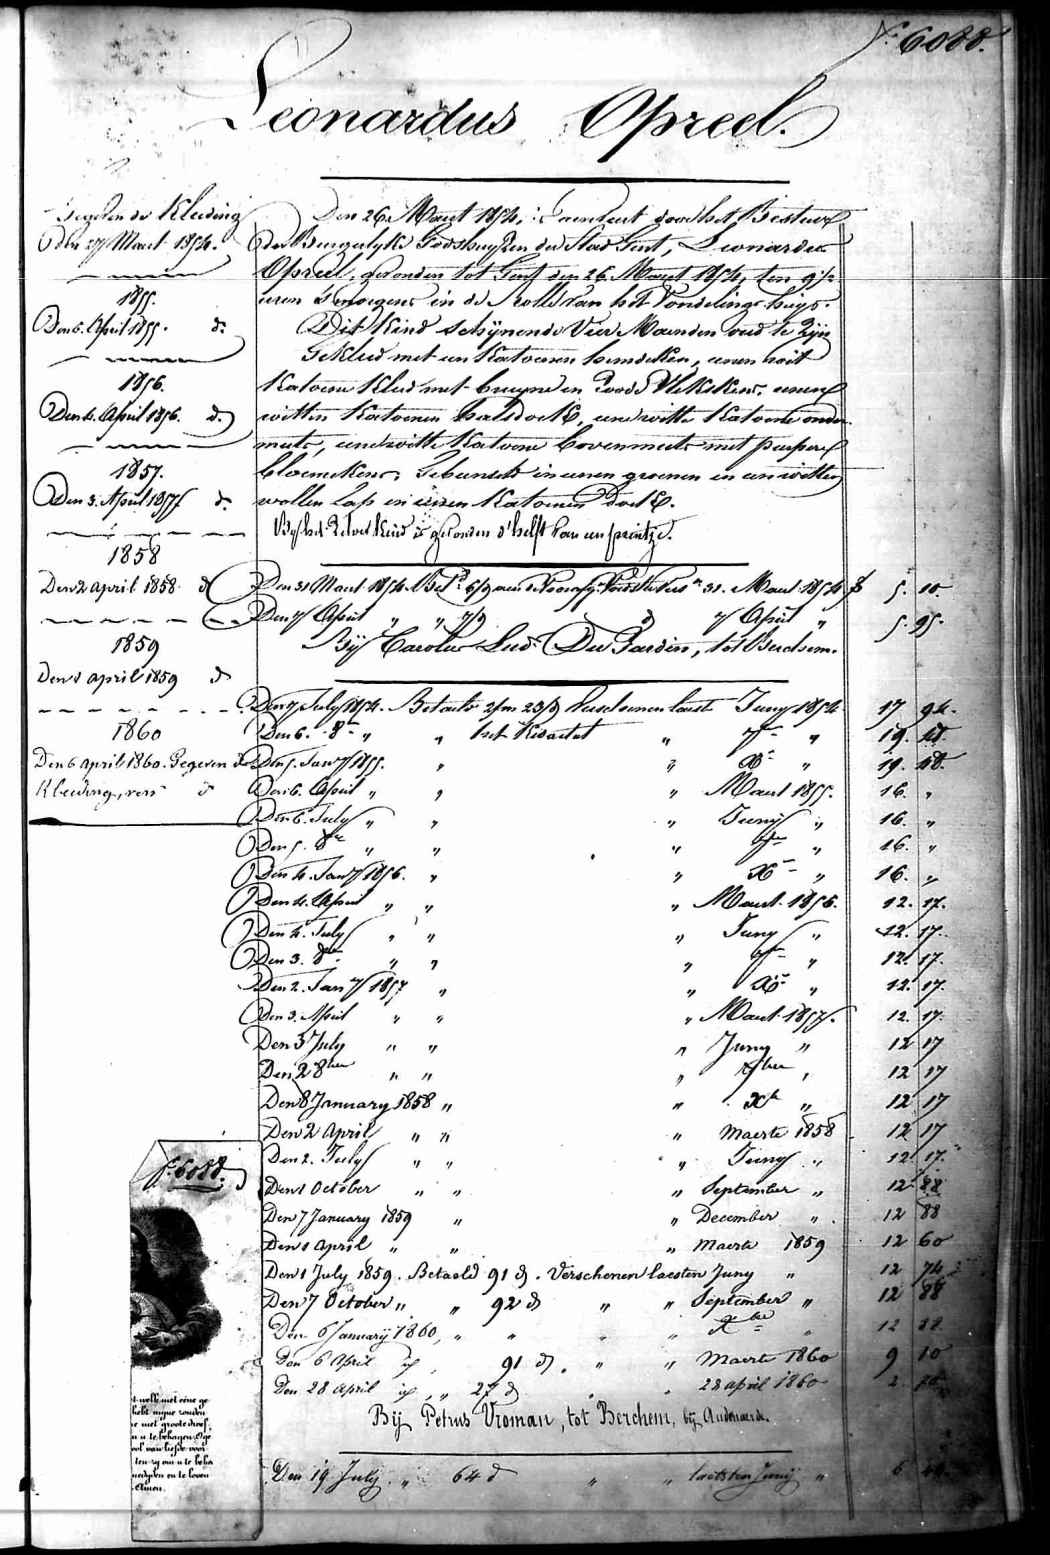 N.° 6088.
Leonardus Opreel.
Gegeven de Kleeding
den 27 Maart 1854.
1855.
Den 6. April 1855. d.°
1856.
Den 4. April 1856. d.°
1857.
Den 3. April 1857 d.°
1858
Den 2 april 1858 d°
1859
Den 1 april 1859 d°
1860
Den 6 april 1860. Gegeven de
Kleeding, d°
Den 26. Maart 1854, door het Bestuur
der Burgerlyke Godshuyzen der Stad Gent, Leonardus
Opreel, gevonden tot Gent den 26. Maart 1854, ten 9 1/2
uren 's morgens in de rolle van het Vondelinge huys.
Dit Kind schynende Vier Maenden oud te zyn
Gekleed met een Katoenen hemdeken, eenen
Katoene Kleed met bruyne en roode Vlekskens, eenen
witten Katoenen halsdoek, eene witte Katoene onder
mutse, eene witte Katoene bovenmuts met purpere
bloemekens, Gebunseld in eenen groenen en een witten
wollen lap en eenen Katoenen doek.
By het Zelve Kind is gevonden d'helft van een prentje.
Den 31 Maart 1854. 6/9 31. Maart 1854 f 5. 10
Den 7 April " " 7/9 d° 7 April " 5. 95.
Bij Carolus Lud. De Jardin, tot Berchem.
Den 7 July 1854. Betaelt 2/m 23/d Verschenen laest Juny 1854 17 94.
Den 6. 8.re " " het Kwartael " 7.re " 19.
Den 5. Jan.y 1855. " " X.re " 19.
Den 6. April " " " Maart 1855. 16. "
Den 6. July " " " Juny " 16. "
Den 5. 8.re " " " 7.re " 16. "
Den 4. Jan.y 1856. " " X.re " 16. "
Den 4. April " " " Maart 1856. 12. 17.
Den 4. July " " " Juny " 12. 17.
Den 3. 8.re " " " 7.re " 12. 17.
Den 2. Jan.y 1857 " " X.re " 12. 17.
Den 3. April " " " Maart 1857. 12. 17.
Den 3 July " " " Juny " 12 17
Den 2 8ber " " " 7ber " 12 17
Den 8 January 1858 " " Xb " 12 17
Den 2 april " " " Maerte 1858 12 17
Den 2. July " " " Juny " 12. 17.
Den 1 October " " " September " 12. 88
Den 7 January 1859 " " December " 12 88
Den 1 april " " " Maerte 1859 12 60
Den 1 July 1859. Betaeld 91 d. Verschenen laesten Juny " 12 74
Den 7 October " " 92 d " " September " 12 88
Den 6 Januarij 1860, " " " " Xbre " 12 88
Den 6 April " 91 d. " " Maerte 1860 9 10
Den 28 April " " 27 d " " 28 april 1860 2. 70
Bij Petrus Vroman, tot Berchem, bij Audenaerde.
Den 19 July " 64 d " " laetsten Junij " 6
N.° 6088.
t welk met eene ge
hebt myne zonden
e met groote droef
n u te behagen. Oge
ool van liefde voor
ten zy om u te beha
nedyden en te loven
Amen.